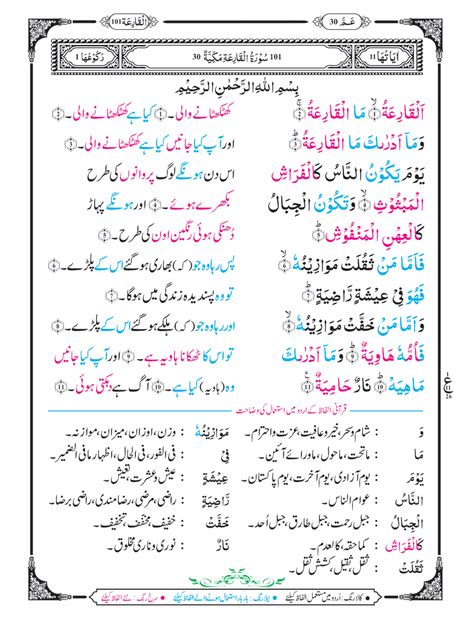 اَلْقَارِعَة 101
عَـمّ 30
اٰيَاتُهَا 11
101 سُوْرَةُ الْقَارِعَةِ مَكِّيَّةٌ 30
رُكُوْعُهَا 1
بِسْمِ اللهِ الرَّحْمٰنِ الرَّحِيْمِ
اَلْقَارِعَةُ ۙ﴿۱﴾ مَا الْقَارِعَةُ ۚ﴿۲﴾ کھٹکھٹانے والی۔﴿۱﴾ کیا ہے کھٹکھٹانے والی۔﴿۲﴾
وَمَاۤ اَدْرٰىكَ مَا الْقَارِعَةُ ؕ﴿۳﴾ اور آپ کیا جانیں کیا ہے کھٹکھٹانے والی۔﴿۳﴾
يَوْمَ يَكُوْنُ النَّاسُ كَالْفَرَاشِ اس دن ہونگے لوگ پروانوں کی طرح
الْمَبْثُوْثِ ۙ﴿۴﴾ وَتَكُوْنُ الْجِبَالُ بکھرے ہوئے۔﴿۴﴾ اور ہونگے پہاڑ
كَالْعِهْنِ الْمَنْفُوْشِ ؕ﴿۵﴾ دُھنکی ہوئی رنگین اون کی طرح۔﴿۵﴾
فَاَمَّا مَنْ ثَقُلَتْ مَوَازِيْنُهٗ ۙ﴿۶﴾ پس رہا وہ جو (کہ) بھاری ہو گئے اس کے پلڑے۔﴿۶﴾
فَهُوَ فِيْ عِيْشَةٍ رَّاضِيَةٍ ؕ﴿۷﴾ تو وہ پسندیدہ زندگی میں ہوگا۔﴿۷﴾
وَاَمَّا مَنْ خَفَّتْ مَوَازِيْنُهٗ ۙ﴿۸﴾ اور رہا وہ جو (کہ) ہلکے ہو گئے اس کے پلڑے۔﴿۸﴾
فَاُمُّهٗ هَاوِيَةٌ ؕ﴿۹﴾ وَمَاۤ اَدْرٰىكَ تو اس کا ٹھکانا ہاویہ ہے۔﴿۹﴾ اور آپ کیا جانیں
مَاهِيَهْ ؕ﴿۱۰﴾ نَارٌ حَامِيَةٌ ﴿۱۱﴾ وہ (ہاویہ) کیا ہے۔﴿۱۰﴾ آگ ہے دہکتی ہوئی۔﴿۱۱﴾
قرآنی الفاظ کے اردو میں استعمال کی وضاحت
وَ : شام و سحر، خیر و عافیت، عزت و احترام۔ مَوَازِيْنُهٗ : وزن، اوزان، میزان، موازنہ۔
مَا : ماتحت، ماحول، ماورائے آئین۔ فِيْ : فی الفور، فی الحال، اظہار مافی الضمیر۔
يَوْمَ : یوم آزادی، یوم آخرت، یوم پاکستان۔ عِيْشَةٍ : عیش و عشرت، تعیش۔
النَّاسُ : عوام الناس۔ رَاضِيَةٍ : راضی، مرضی، رضامندی، راضی برضا۔
الْجِبَالُ : جبل رحمت، جبل طارق، جبل اُحد۔ خَفَّتْ : خفیف، مخفف، تخفیف۔
كَالْفَرَاشِ : کماحقہ، کالعدم۔ نَارٌ : نوری و ناری مخلوق۔
ثَقُلَتْ : ثقل، ثقیل، کشش ثقل۔
• کالا رنگ : اُردو میں مستعمل الفاظ کیلئے • نیلا رنگ : بار بار استعمال ہونے والے الفاظ کیلئے • سرخ رنگ : نئے الفاظ کیلئے